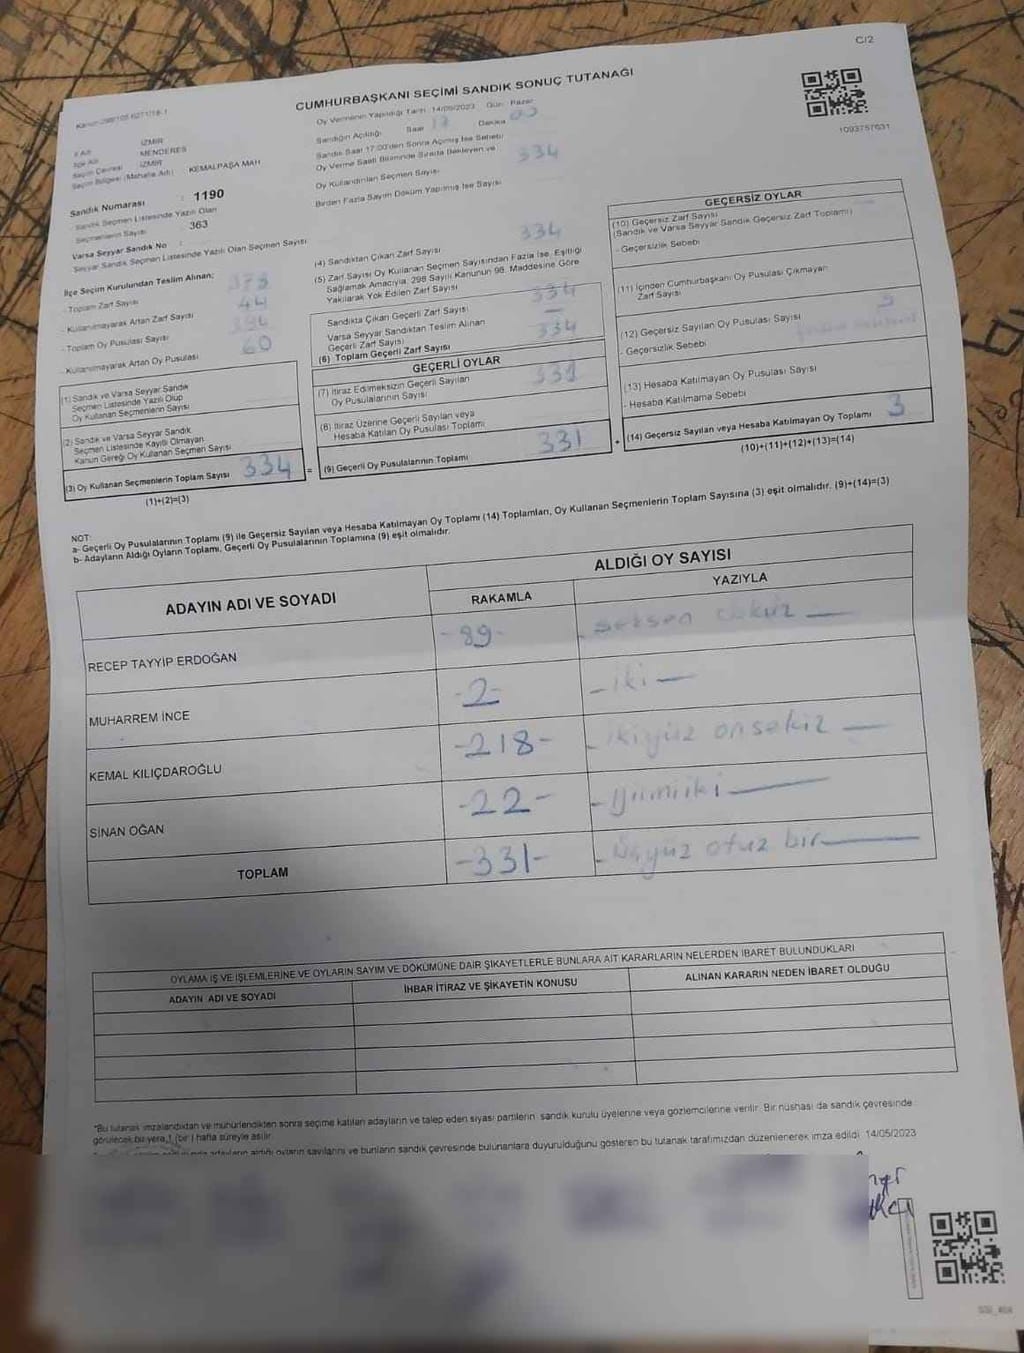 C/2
CUMHURBAŞKANI SEÇİMİ SANDIK SONUÇ TUTANAĞI
1093757631
Oy Vermenin Yapıldığı Tarih 14/05/2023 Gün: Pazar
Sandığın Açıldığı Saat 17 Dakika 00
Sandık Saat 17:00'den Sonra Açılmış İse Sebebi
Oy Verme Saati Bitiminde Sırada Bekleyen ve
Oy Kullandırılan Seçmen Sayısı 334
Birden Fazla Sayım Döküm Yapılmış İse Sayısı
İl Adı İZMİR
İlçe Adı MENDERES
Seçim Çevresi İZMİR
Seçim Bölgesi (Mahalle Adı) KEMALPAŞA MAH
Sandık Numarası : 1190
Sandık Seçmen Listesinde Yazılı Olan
Seçmenlerin Sayısı 363
Varsa Seyyar Sandık No :
Seyyar Sandık Seçmen Listesinde Yazılı Olan Seçmen Sayısı
İlçe Seçim Kurulundan Teslim Alınan;
- Toplam Zarf Sayısı
- Kullanılmayarak Artan Zarf Sayısı 44
- Toplam Oy Pusulası Sayısı
- Kullanılmayarak Artan Oy Pusulası 60
(1) Sandık ve Varsa Seyyar Sandık
Seçmen Listesinde Yazılı Olup
Oy Kullanan Seçmenlerin Sayısı
(2) Sandık ve Varsa Seyyar Sandık
Seçmen Listesinde Kayıtlı Olmayan
Kanun Gereği Oy Kullanan Seçmen Sayısı
(3) Oy Kullanan Seçmenlerin Toplam Sayısı 334
(1)+(2)=(3)
(4) Sandıktan Çıkan Zarf Sayısı 334
(5) Zarf Sayısı Oy Kullanan Seçmen Sayısından Fazla İse, Eşitliği
Sağlamak Amacıyla, 298 Sayılı Kanunun 98. Maddesine Göre
Yakılarak Yok Edilen Zarf Sayısı
Sandıkta Çıkan Geçerli Zarf Sayısı 334
Varsa Seyyar Sandıktan Teslim Alınan
Geçerli Zarf Sayısı —
(6) Toplam Geçerli Zarf Sayısı 334
GEÇERLİ OYLAR
(7) İtiraz Edilmeksizin Geçerli Sayılan
Oy Pusulalarının Sayısı 331
(8) İtiraz Üzerine Geçerli Sayılan veya
Hesaba Katılan Oy Pusulası Toplamı
= (9) Geçerli Oy Pusulalarının Toplamı 331
GEÇERSİZ OYLAR
(10) Geçersiz Zarf Sayısı
(Sandık ve Varsa Seyyar Sandık Geçersiz Zarf Toplamı)
- Geçersizlik Sebebi
(11) İçinden Cumhurbaşkanı Oy Pusulası Çıkmayan
Zarf Sayısı
(12) Geçersiz Sayılan Oy Pusulası Sayısı 3
- Geçersizlik Sebebi
(13) Hesaba Katılmayan Oy Pusulası Sayısı
- Hesaba Katılmama Sebebi
+ (14) Geçersiz Sayılan veya Hesaba Katılmayan Oy Toplamı 3
(10)+(11)+(12)+(13)=(14)
NOT:
a- Geçerli Oy Pusulalarının Toplamı (9) ile Geçersiz Sayılan veya Hesaba Katılmayan Oy Toplamı (14) Toplamları, Oy Kullanan Seçmenlerin Toplam Sayısına (3) eşit olmalıdır. (9)+(14)=(3)
b- Adayların Aldığı Oyların Toplamı, Geçerli Oy Pusulalarının Toplamına (9) eşit olmalıdır.
ADAYIN ADI VE SOYADI
ALDIĞI OY SAYISI
RAKAMLA YAZIYLA
RECEP TAYYİP ERDOĞAN -89- - seksen dokuz —
MUHARREM İNCE -2- - iki —
KEMAL KILIÇDAROĞLU -218- - ikiyüz onsekiz —
SİNAN OĞAN -22- - yirmiiki —
TOPLAM -331- - üçyüz otuz bir —
OYLAMA İŞ VE İŞLEMLERİNE VE OYLARIN SAYIM VE DÖKÜMÜNE DAİR ŞİKAYETLERLE BUNLARA AİT KARARLARIN NELERDEN İBARET BULUNDUKLARI
ADAYIN ADI VE SOYADI İHBAR İTİRAZ VE ŞİKAYETİN KONUSU ALINAN KARARIN NEDEN İBARET OLDUĞU
*Bu tutanak imzalandıktan ve mühürlendikten sonra seçime katılan adayların ve talep eden siyasi partilerin sandık kurulu üyelerine veya gözlemcilerine verilir. Bir nüshası da sandık çevresinde
görülecek bir yere 1 (bir) hafta süreyle asılır.
adayların aldığı oyların sayılarını ve bunların sandık çevresinde bulunanlara duyurulduğunu gösteren bu tutanak tarafımızdan düzenlenerek imza edildi 14/05/2023